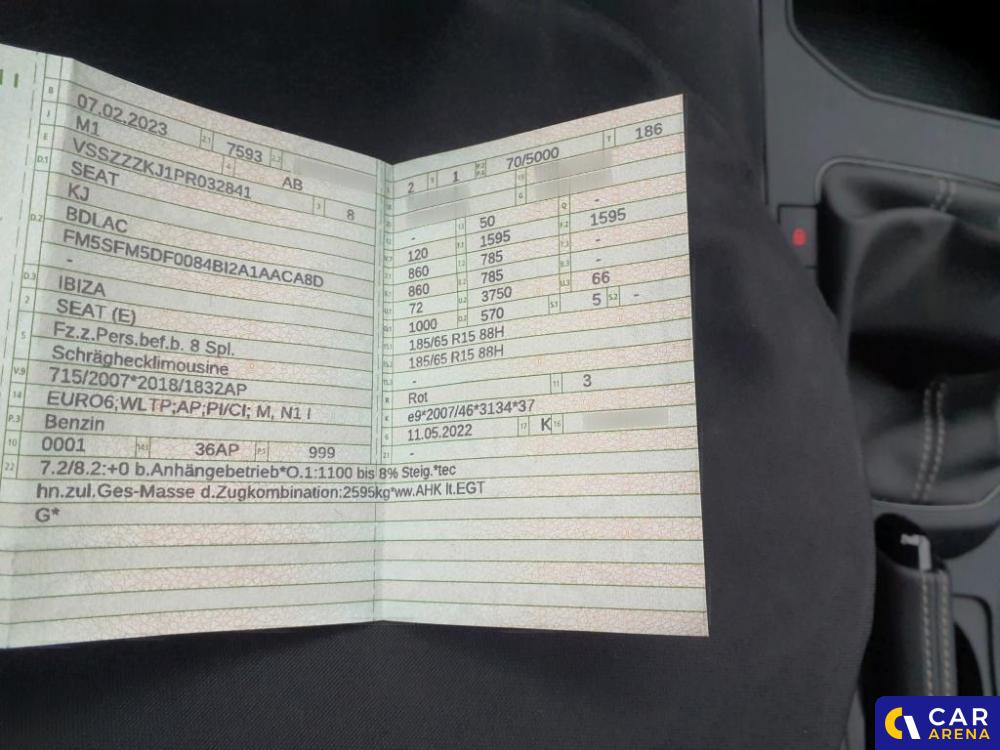 B 07.02.2023 2.1 7593 2.2
J M1 4 AB
E VSSZZZKJ1PR032841 3 8
D.1 SEAT
KJ
D.2 BDLAC
FM5SFM5DF0084BI2A1AACA8D
-
D.3 IBIZA
2 SEAT (E)
5 Fz.z.Pers.bef.b. 8 Spl.
Schräghecklimousine
V.9 715/2007*2018/1832AP
14 EURO6;WLTP;AP;PI/CI; M, N1 I
P.3 Benzin
10 0001 14.1 36AP P.1 999
22 7.2/8.2:+0 b.Anhängebetrieb*O.1:1100 bis 8% Steig.*tec
hn.zul.Ges-Masse d.Zugkombination:2595kg*ww.AHK lt.EGT
G*
2 9 1 P.2 P.4 70/5000 T 186
G
- 13 50 Q -
120 F.1 1595 F.2 1595
860 785 -
860 785 -
72 U.2 3750 U.3 66
1000 O.2 570 S.1 5 S.2 -
185/65 R15 88H
185/65 R15 88H
-
R Rot 11 3
K e9*2007/46*3134*37
6 11.05.2022 17 K 16
21 -
CAR
ARENA